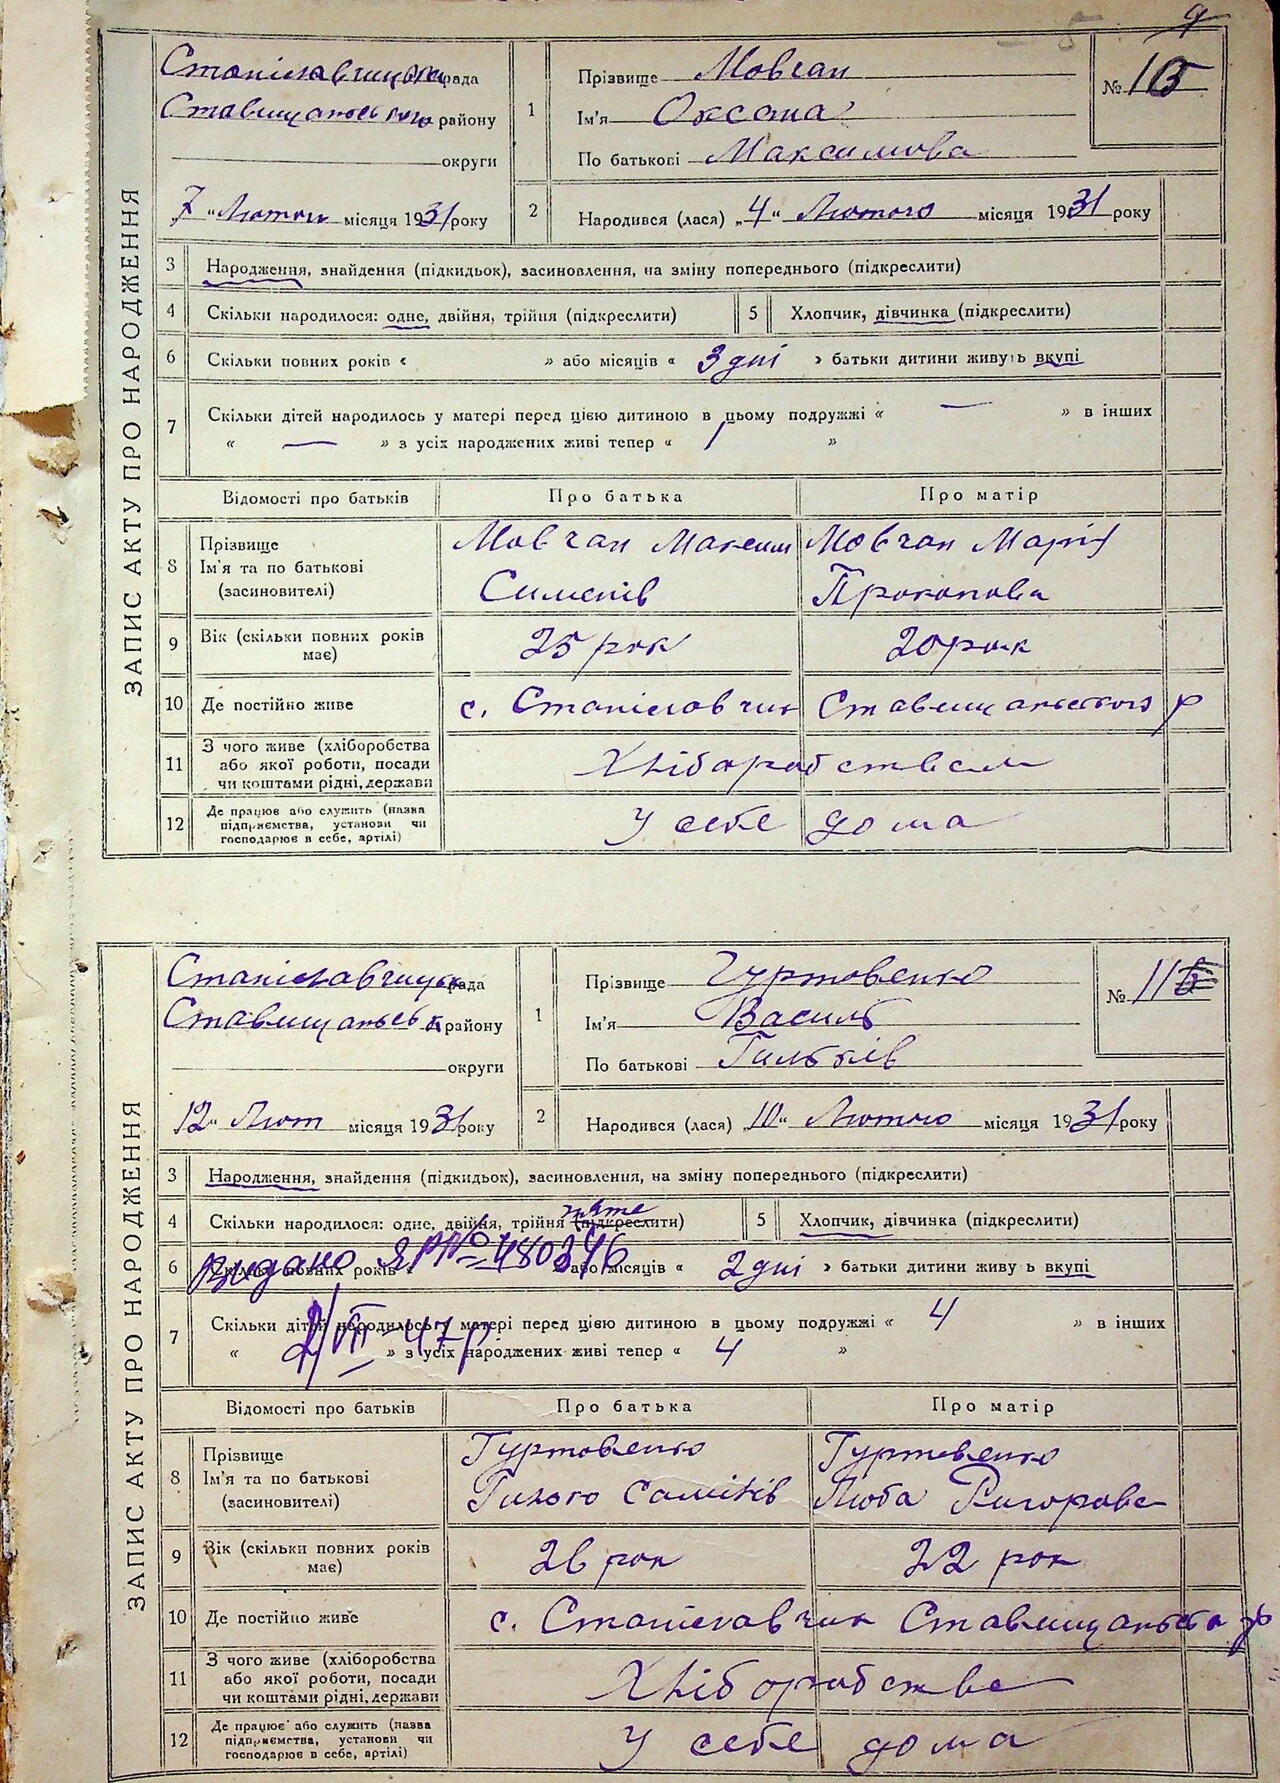 9
ЗАПИС АКТУ ПРО НАРОДЖЕННЯ
Станіславчицька рада
Ставищанського району
округи
7 "Лютого місяця 1931 року
1 Прізвище Мовчан
Ім'я Оксана
По батькові Максимова
№ 10
2 Народився (лася) „4" Лютого місяця 1931 року
3 Народження, знайдення (підкидьок), засиновлення, на зміну попереднього (підкреслити)
4 Скільки народилося: одне, двійня, трійня (підкреслити) 5 Хлопчик, дівчинка (підкреслити)
6 Скільки повних років « » або місяців « 3 дні » батьки дитини живуть вкупі
7 Скільки дітей народилось у матері перед цією дитиною в цьому подружжі « — » в інших
« — » з усіх народжених живі тепер « 1 »
Відомості про батьків Про батька Про матір
8 Прізвище Ім'я та по батькові (засиновителі) Мовчан Максим Мовчан Марія
Сименів Прокопова
9 Вік (скільки повних років має) 25 рок 20 рок
10 Де постійно живе с. Станіславчик Ставищанського р
11 З чого живе (хліборобства або якої роботи, посади чи коштами рідні, держави Хліборобством
12 Де працює або служить (назва підприємства, установи чи господарює в себе, артілі) У себе дома
ЗАПИС АКТУ ПРО НАРОДЖЕННЯ
Станіславчицька рада
Ставищанськ району
округи
12 " Лют місяця 1931 року
1 Прізвище Гуртовенко
Ім'я Василь
По батькові
№ 11
2 Народився (лася) „10" Лютого місяця 1931 року
3 Народження, знайдення (підкидьок), засиновлення, на зміну попереднього (підкреслити)
4 Скільки народилося: одне, двійня, трійня (підкреслити) 5 Хлопчик, дівчинка (підкреслити)
пяте
6 Скільки повних років « » або місяців « 2 дні » батьки дитини живу ь вкупі
видано ЯР № 480346
7 Скільки дітей народилось у матері перед цією дитиною в цьому подружжі « 4 » в інших
« » з усіх народжених живі тепер « 4 »
2/VII-47 р
Відомості про батьків Про батька Про матір
8 Прізвище Ім'я та по батькові (засиновителі) Гуртовенко Гуртовенко
Люба Ригорова
9 Вік (скільки повних років має) 26 рок 22 рок
10 Де постійно живе с. Станіславчик Ставищанська р
11 З чого живе (хліборобства або якої роботи, посади чи коштами рідні, держави Хліборобство
12 Де працює або служить (назва підприємства, установи чи господарює в себе, артілі) У себе дома